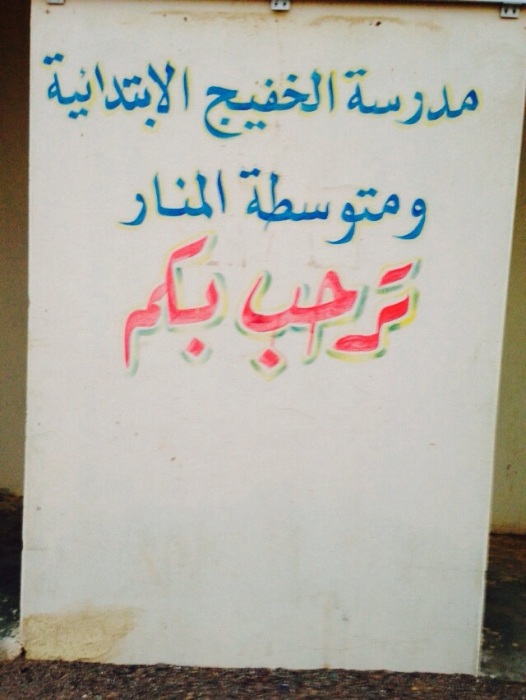 مدرسة الخفيج الابتدائية
ومتوسطة المنار
ترحب بكم